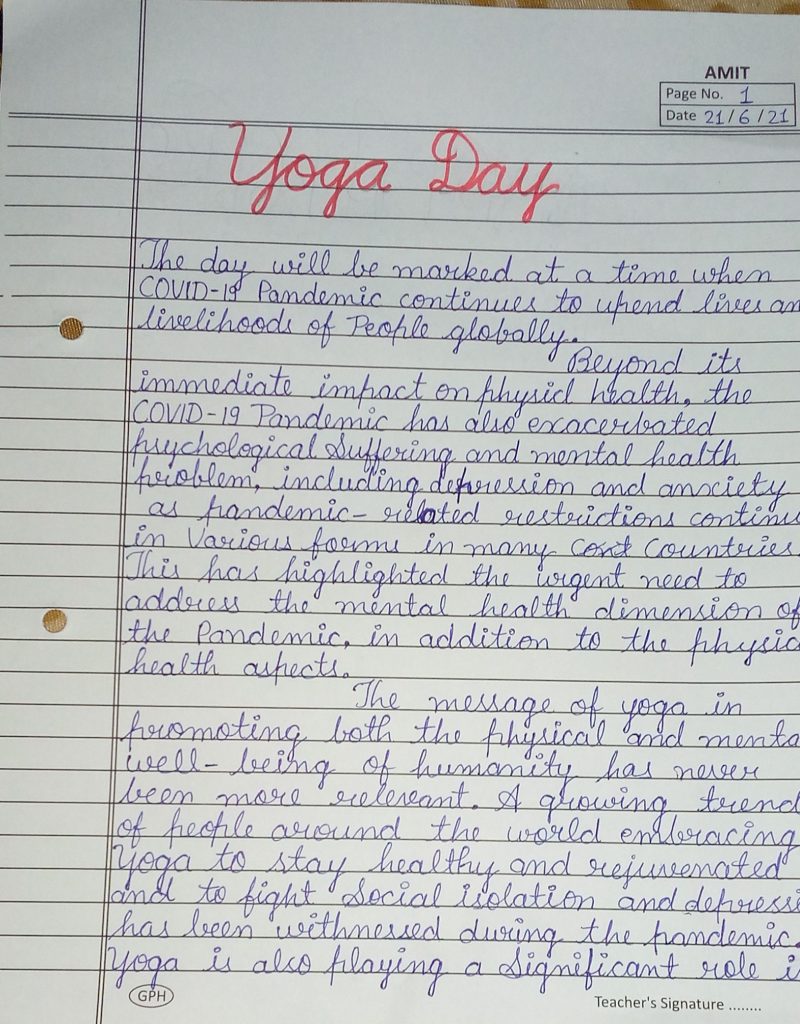 AMIT
Page No. 1
Date 21/6/21
Yoga Day
The day will be marked at a time when
COVID-19 Pandemic continues to upend lives an
livelihoods of People globally.
Beyond its
immediate impact on physicl health, the
COVID-19 Pandemic has also exacerbated
psychological Suffering and mental health
problem, including depression and anxciety
as pandemic-related restrictions continu
in Various forms in many Countries.
This has highlighted the urgent need to
address the mental health dimension of
the Pandemic, in addition to the physic
health aspects.
The message of yoga in
promoting both the physical and menta
well-being of humanity has never
been more relevant. A growing trend
of people around the world embracing
Yoga to stay healthy and rejuvenated
and to fight Social isolation and depressi
has been withnessed during the pandemic.
Yoga is also playing a Significant role i
GPH
Teacher's Signature ........